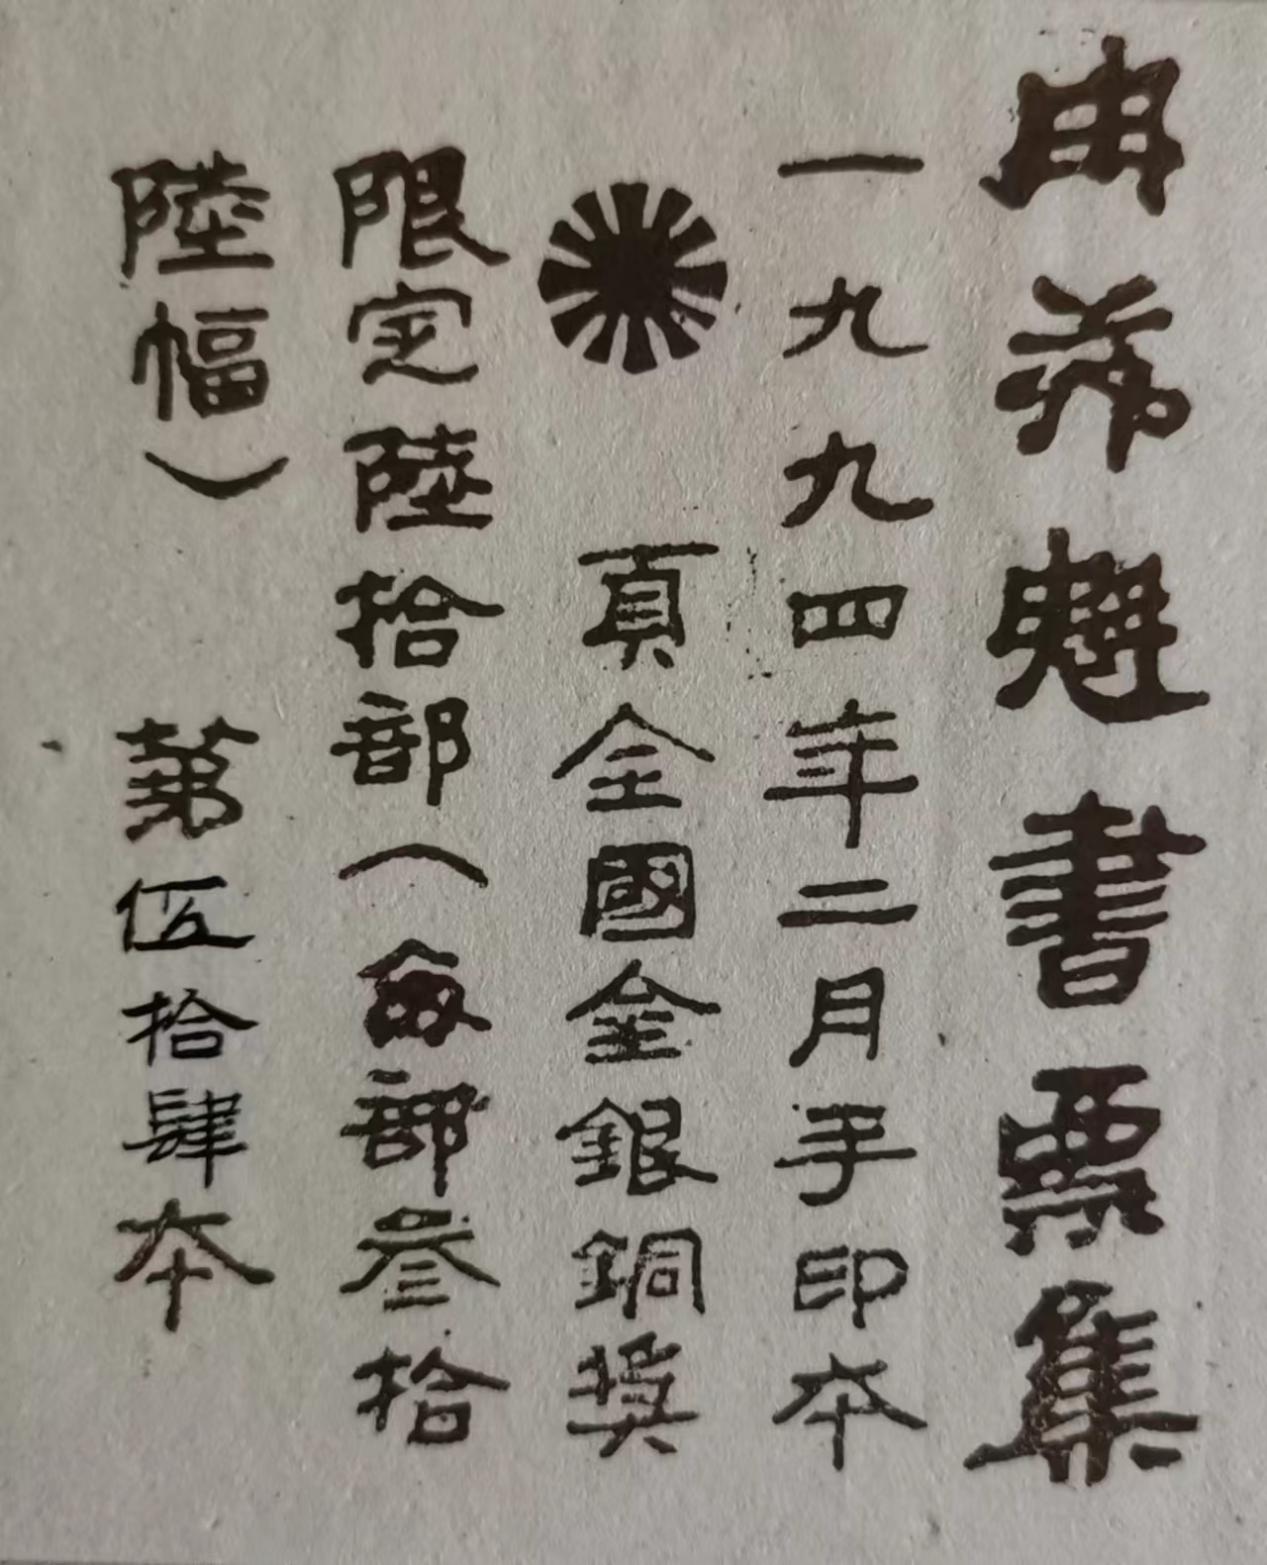 冉茂魁書票集
一九九四年二月手印本
頁全國金銀銅獎
限定陸拾部（每部叁拾
陸幅） 第伍拾肆本